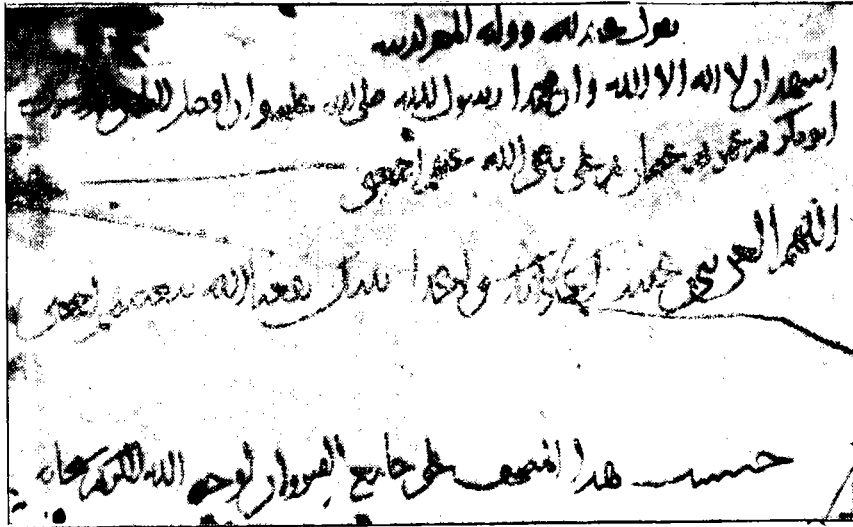 يقول عبد الله ووليه المعز لدينه
اشهد ان لا اله الا الله وان محمدا رسول الله صلى الله عليه وان افضل الناس بعد رسول
ابو بكر ثم عمر ثم عثمان ثم علي رضي الله عنهم اجمعين
اللهم العن بني عبيد اعداء واعداء نبيك نفعنا الله ببغضهم اجمعين
حبست هذا المصحف على جامع القيروان لوجه الله الكريم سبحانه